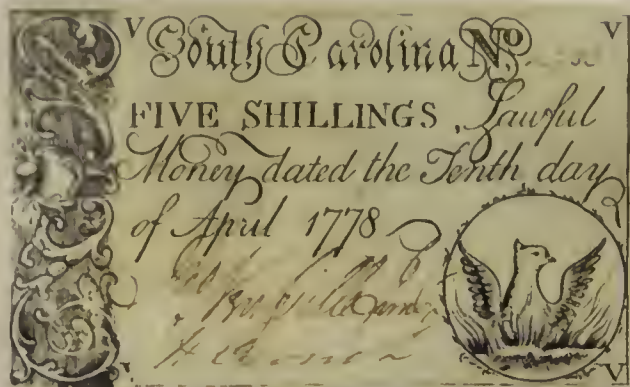 V South Carolina No. V
FIVE SHILLINGS, Lawful
Money dated the Tenth day
of April 1778
V V